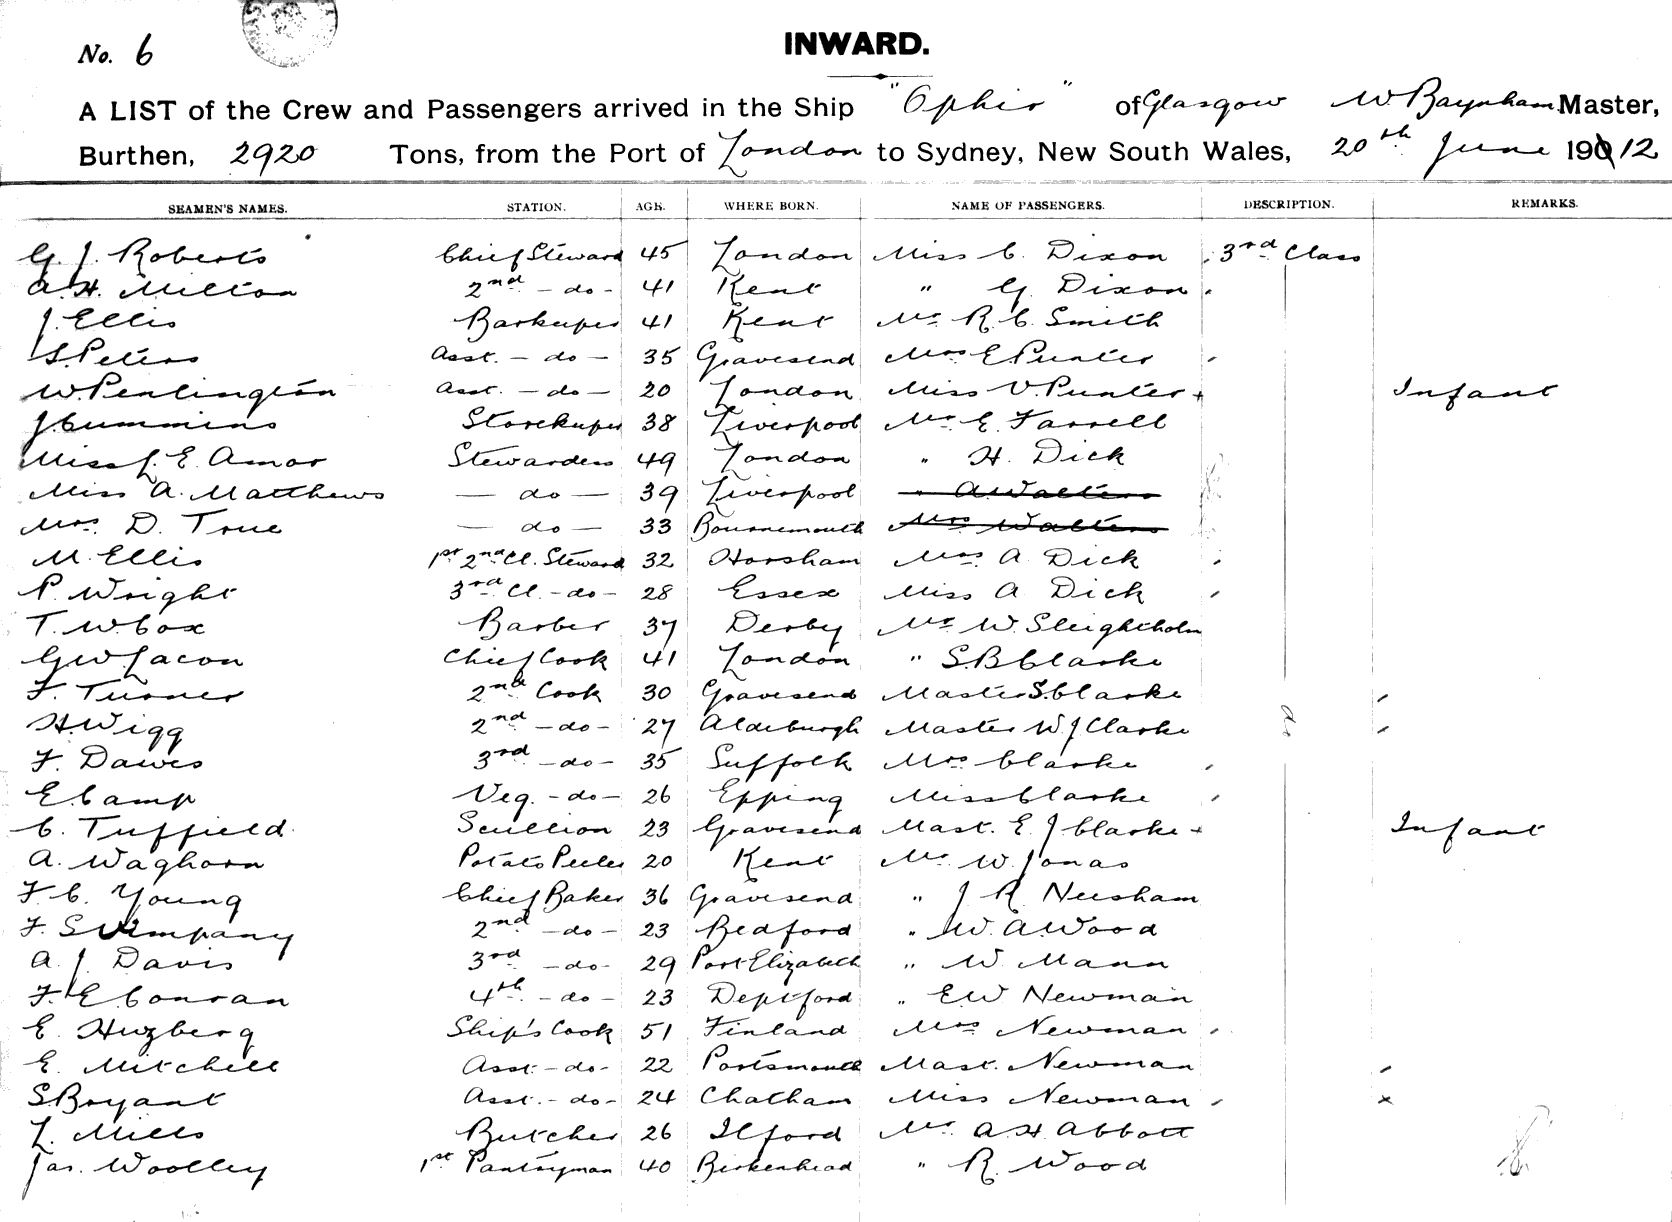 No. 6
INWARD.
A LIST of the Crew and Passengers arrived in the Ship "Ophir" of Glasgow W Baynham Master,
Burthen, 2920 Tons, from the Port of London to Sydney, New South Wales, 20th June 190 12
SEAMEN'S NAMES. STATION. AGE. WHERE BORN. NAME OF PASSENGERS. DESCRIPTION. REMARKS.
G. J. Roberts Chief Steward 45 London Miss C. Dixon 3rd Class
A. H. Milton 2nd - do - 41 Kent " G. Dixon
J. Ellis Barkeeper 41 Kent Mr R. C. Smith
S. Peters Asst. - do - 35 Gravesend Mrs E Punter
W. Penlington Asst. - do - 20 London Miss V. Punter + Infant
J. Cummins Storekeeper 38 Liverpool Mr E. Farrell
Miss J. E. Amor Stewardess 49 London " H. Dick
Miss A. Matthews - do - 39 Liverpool " A Walters
Mrs. D. True - do - 33 Bournemouth Mrs Walters
M. Ellis 1st 2nd Cl. Steward 32 Horsham Mrs. A Dick
P. Wright 3rd Cl. - do - 28 Essex Miss A Dick
T. W. Cox Barber 37 Derby Mr W. Sleightholm
G W. Lacon Chief Cook 41 London " S. B Clarke
F. Turner 2nd Cook 30 Gravesend Master S. Clarke
H. Wigg 2nd - do - 27 Aldeburgh Master W J Clarke do
F. Dawes 3rd - do - 35 Suffolk Mrs Clarke
E. Camp Veg. - do - 26 Epping Miss Clarke
C. Tuffield Scullion 23 Gravesend Mast. E. J Clarke + Infant
A. Waghorn Potato Peeler 20 Kent Mr. W. Jonas
F. C. Young Chief Baker 36 Gravesend " J R Neesham
F. S Vimpany 2nd - do - 23 Bedford " W. A. Wood
A. J. Davis 3rd - do - 29 Port Elizabeth " W Mann
F. E. Conran 4th - do - 23 Deptford " E. W Newman
E. Huzberg Ship's Cook 51 Finland Mrs Newman
E. Mitchell Asst - do - 22 Portsmouth Mast. Newman
S. Bryant Asst. - do - 24 Chatham Miss Newman x
L. Mills Butcher 26 Ilford Mr A. H. Abbott
Jas. Woolley 1st Pantryman 40 Birkenhead " R. Wood